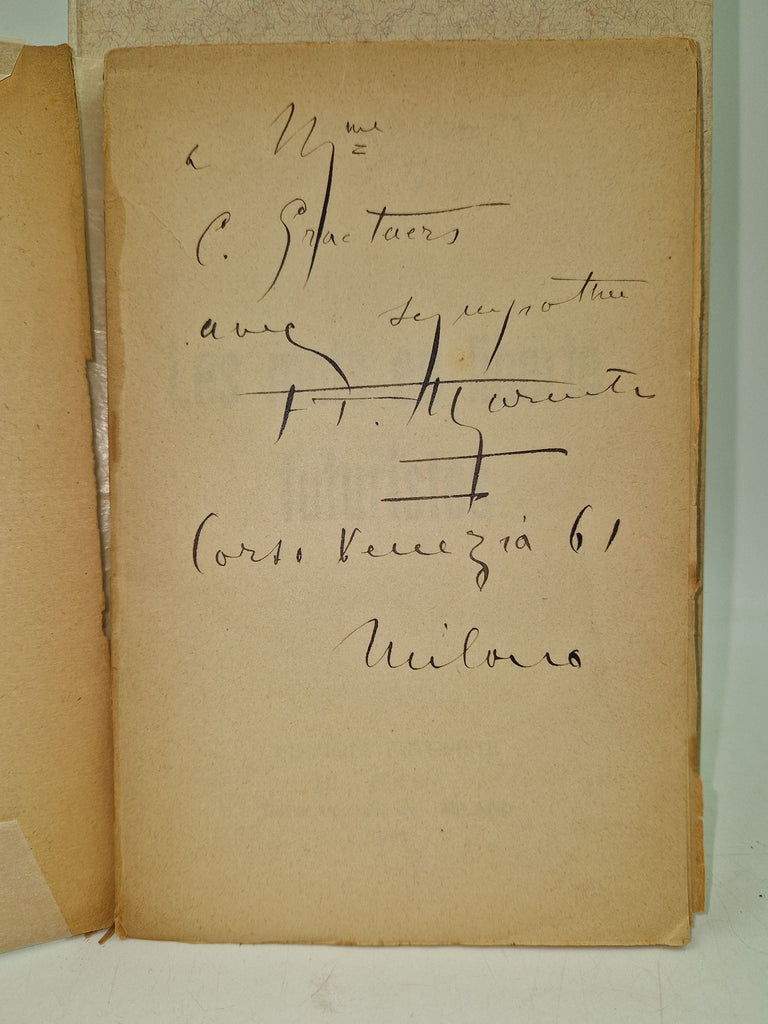 a Mme
C. Graetwers
avec sympathie
F. T. Marinetti
Corso Venezia 61
Milano